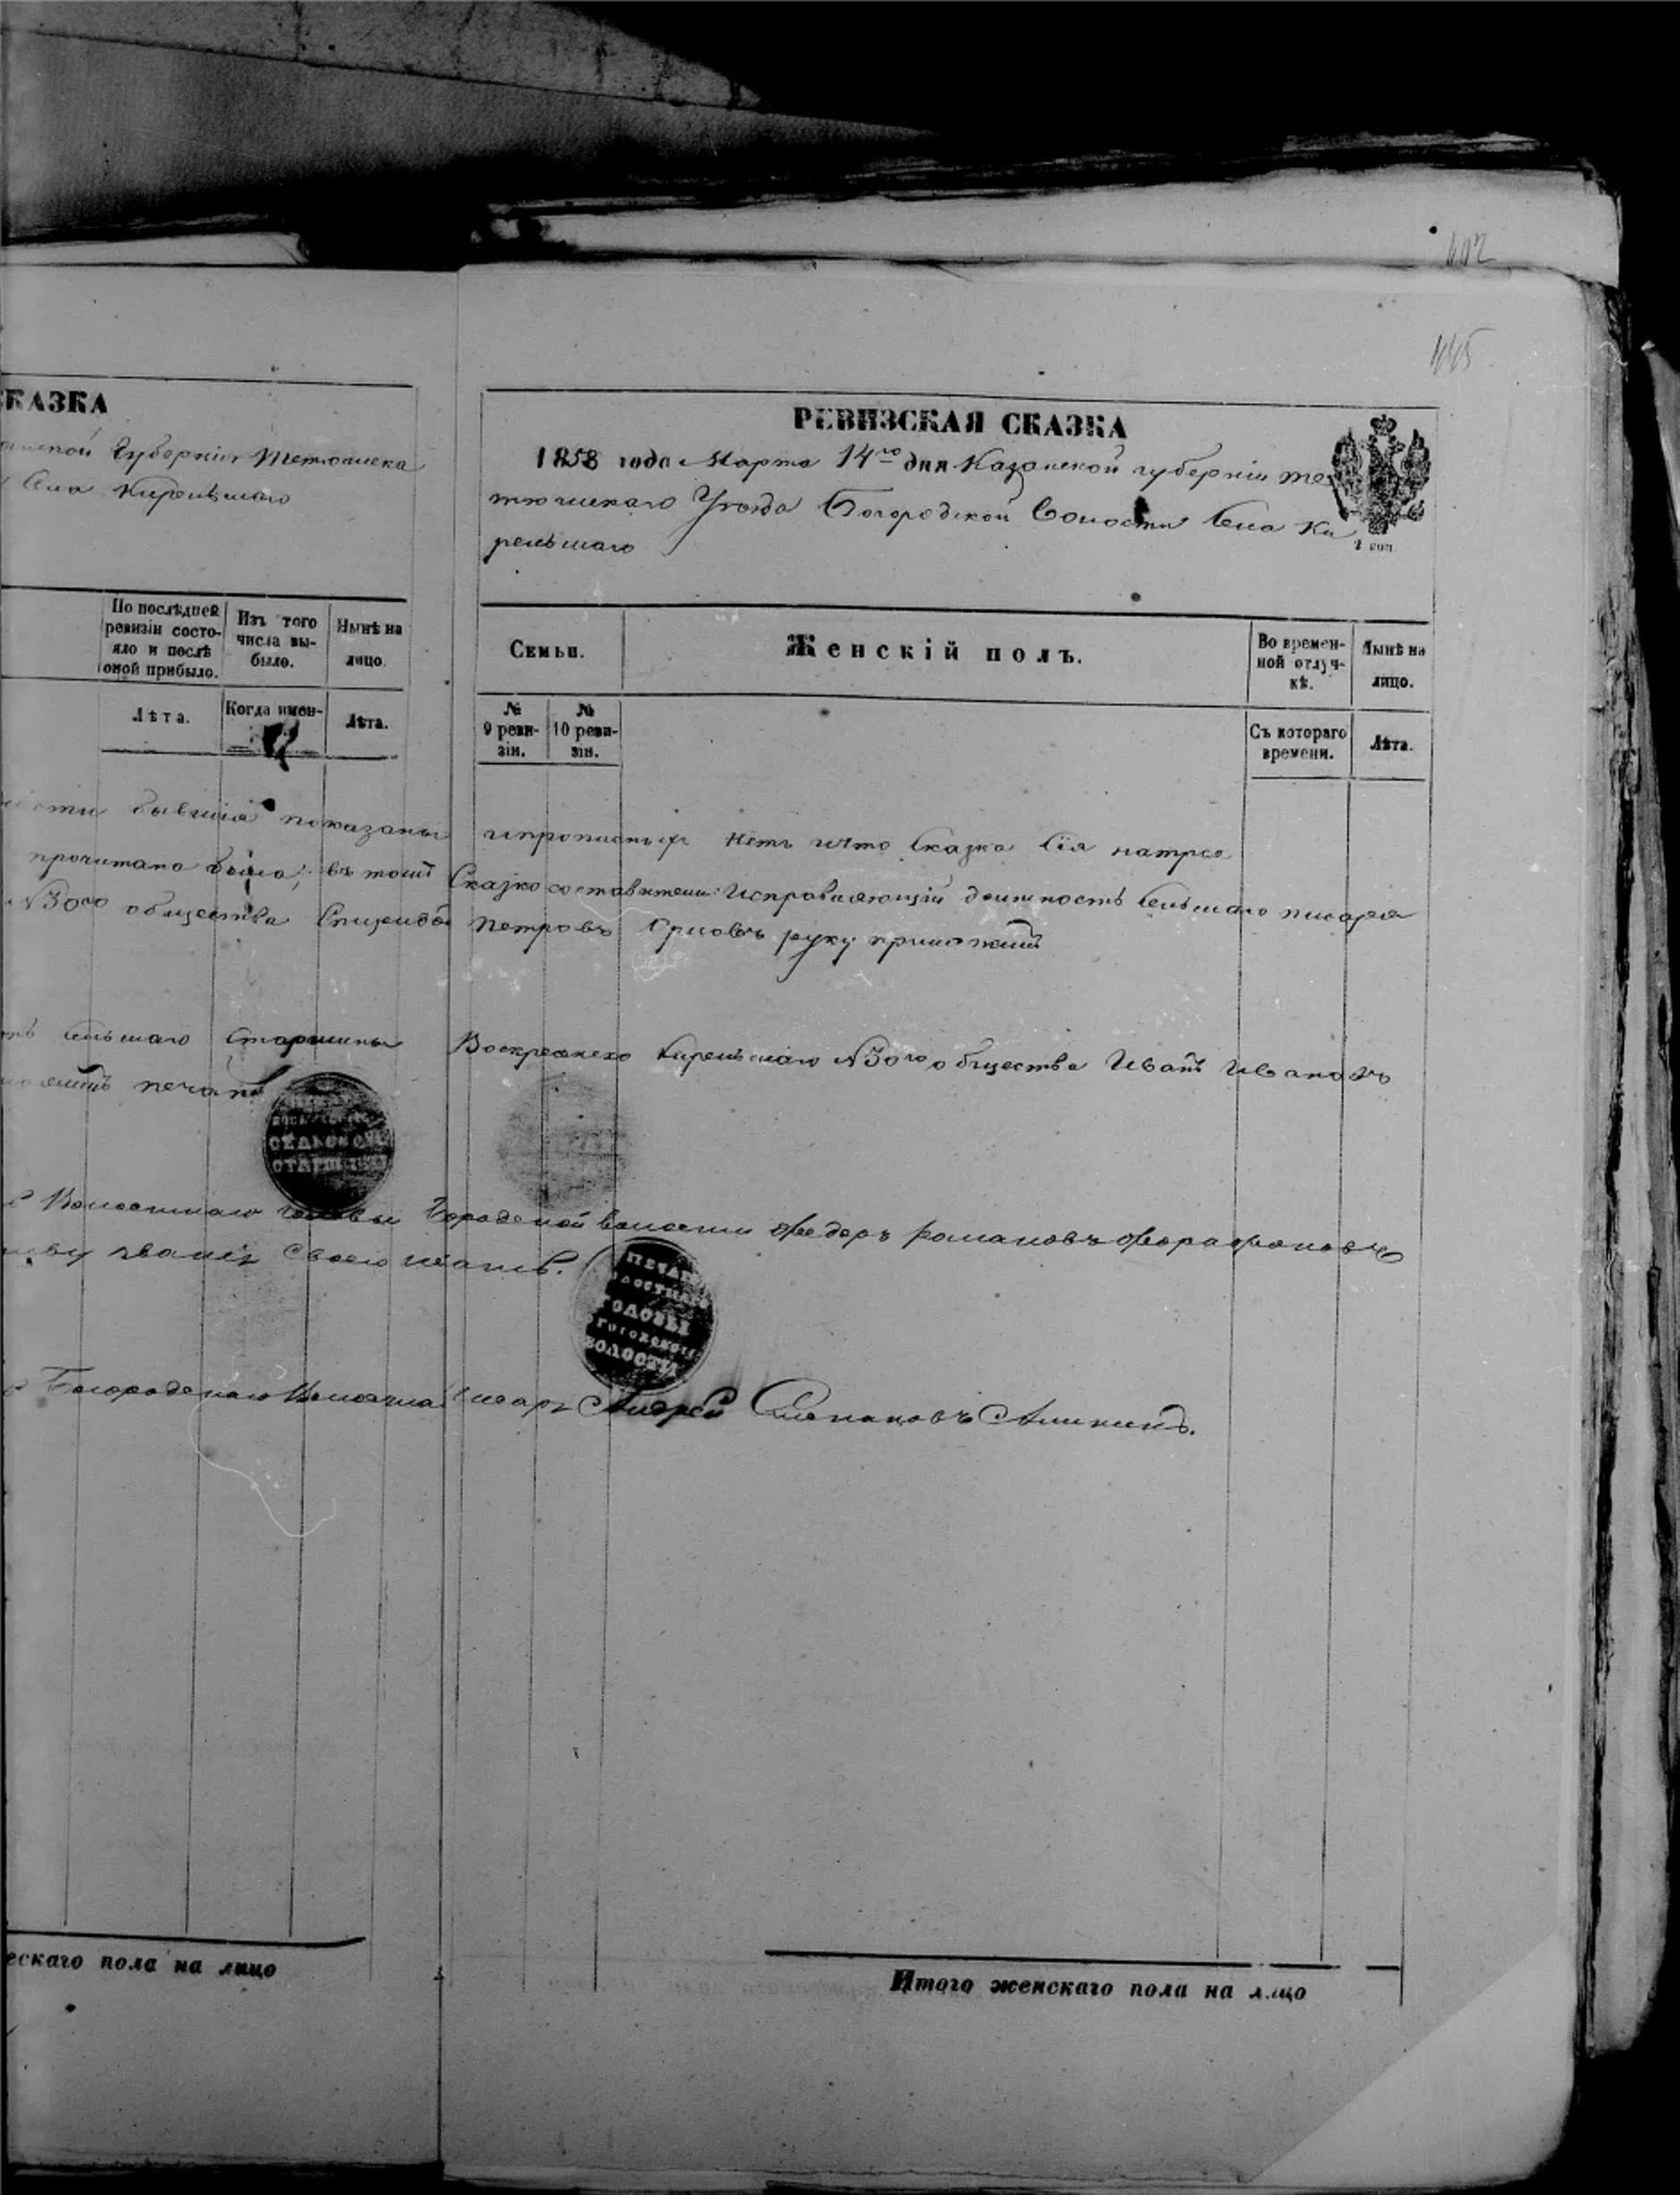 402
445
КАЗКА
Губерніи Тетюшска
Села Кирельскаго
По послѣдней ревизіи состояло и послѣ оной прибыло.
Изъ того числа выбыло.
Нынѣ на лицо.
Лѣта.
Когда имен-
Лѣта.
РЕВИЗСКАЯ СКАЗКА
1858 года Марта 14го дня Казанской губерніи Те
тюшскаго Уѣзда Богородской Волости Села Ки
рельскаго
2 коп.
Семьи.
Женскій полъ.
Во временной отлучкѣ.
Нынѣ на лицо.
№ 9 ревизіи.
№ 10 ревизіи.
Съ котораго времени.
Лѣта.
бывшія показаны и прописных нетъ и что Сказка Сія
прочитана была; въ томъ Сказко составители Исправляющій должность Сельскаго писаря
№3го общества Петровъ Орловъ руку приложилъ
Сельскаго Старшины Воскресенско Кирельскаго №3го общества Иванъ Ивановъ
печать
СЕЛЬСКОГО
СТАРШИНЫ
Волостнаго Головы Богородской волости Федоръ Романовъ Форафоновъ
званія своего печать.
ПЕЧАТЬ
ВОЛОСТНАГО
ГОЛОВЫ
БОГОРОДСКОЙ
ВОЛОСТИ
Богородскаго Волостна писарь Андрей Степановъ
ескаго пола на лицо
Итого женскаго пола на лицо